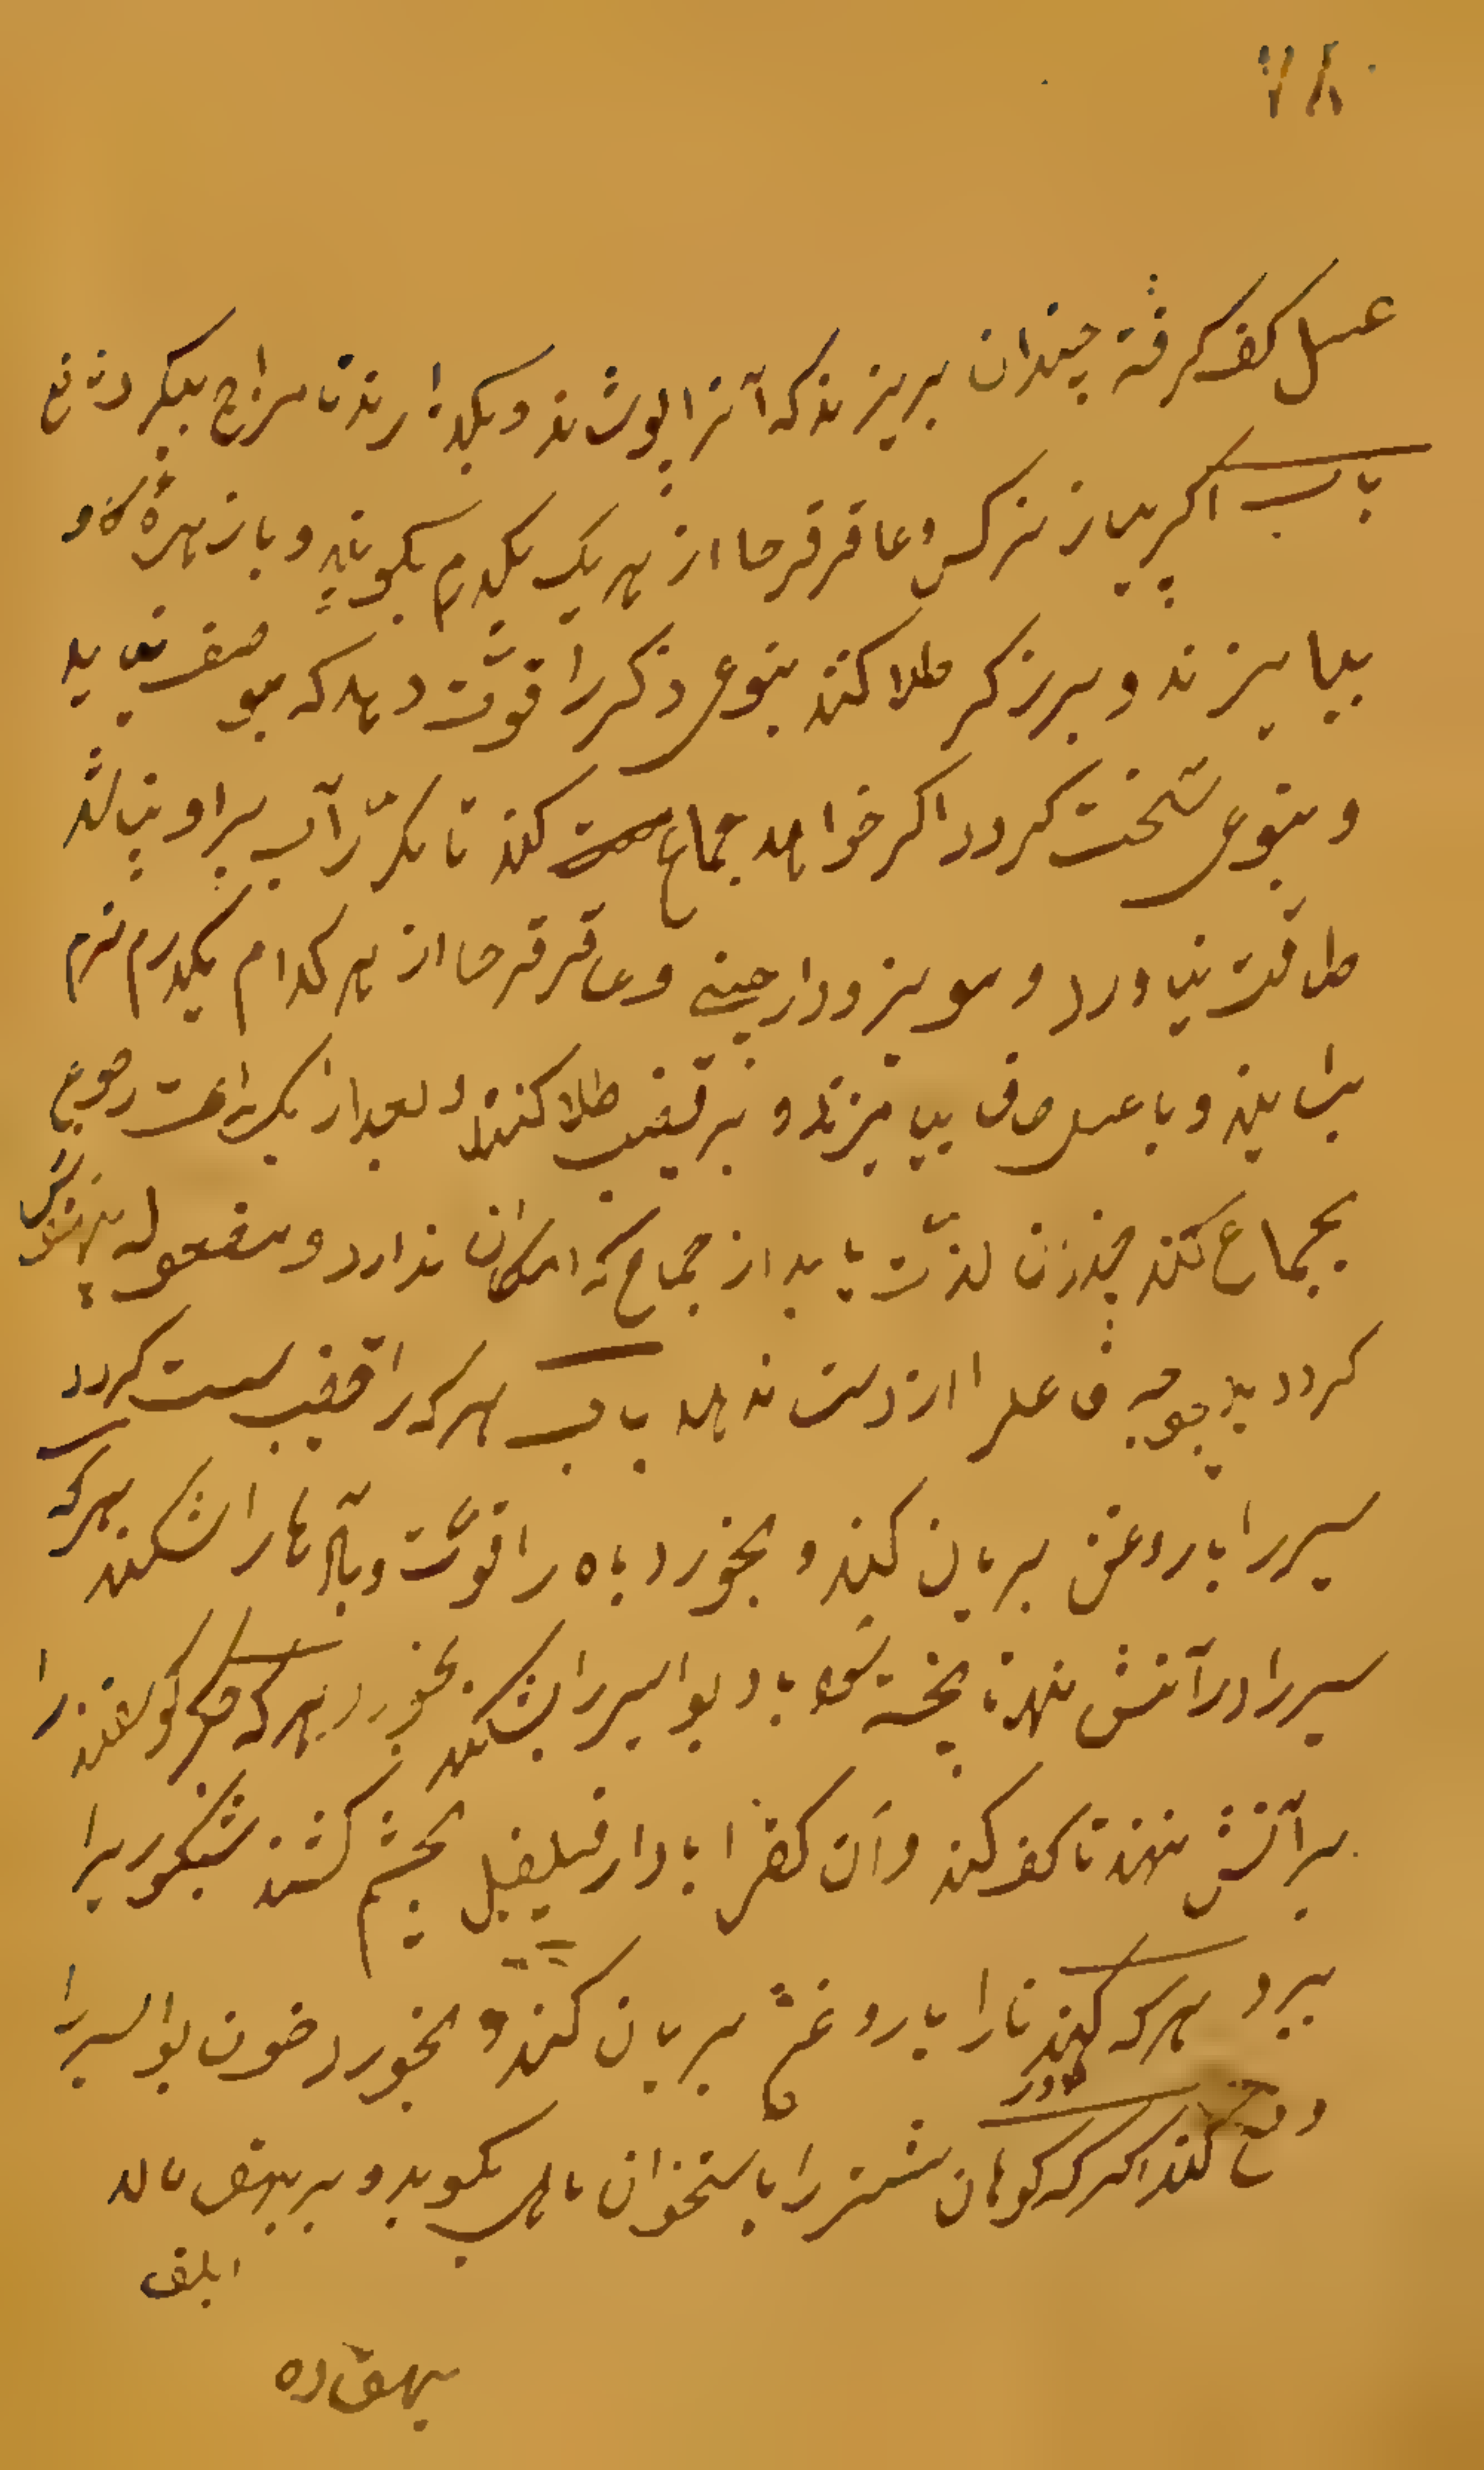 عسل کف کرفته چندان بریزند که آنرا بپوشاند و بکذارند تا مزاج بیکرد نافع
باب اکر پیاز نرکس و عاقرقرحا از هر یک یکدرم بکوبند و با زهرهٔ کاو
بیامیزند و بر ذکر طلا کنند بنوعی ذکر را قوّت دهد که بوصف نیاید
و بنوعی سخت کردد اکر خواهد جماع کند تا مکرّر آب بر او نپاشند
طاقت نیاورد و مویز و دارچینی و عاقرقرحا از هر کدام یکدرم نرم
بسایند و با عسل صاف بیامیزند و بر قضیب طلا کنند و بعد از یکساعت رجوع
بجماع کند چندان لذّت یابد از جماع که امکان ندارد و مفعوله بیهوش
کردد بهیچوجه فاعل را از دست ندهد باب هر که را قضیب سست کردد
سیر را با روغن بریان کند و بخورد باه را قوّت و بادها را بشکند هر که
سیر را در آتش نهد تا پخته شود باد بواسیر را بشکند بخورد هر که جکر کوسفند را
بر آتش نهند تا کف کند و آن کف را با دارفلفل بچشم کشند شبکوریرا
ببرد هر که کندنا را با روغن بریان کند و بخورد خون بواسیر را
دفع کند اکر که کوهان شتر را با ستخوان ماهی بکوبد و بر بهق مالد
ابلق
بهق ده